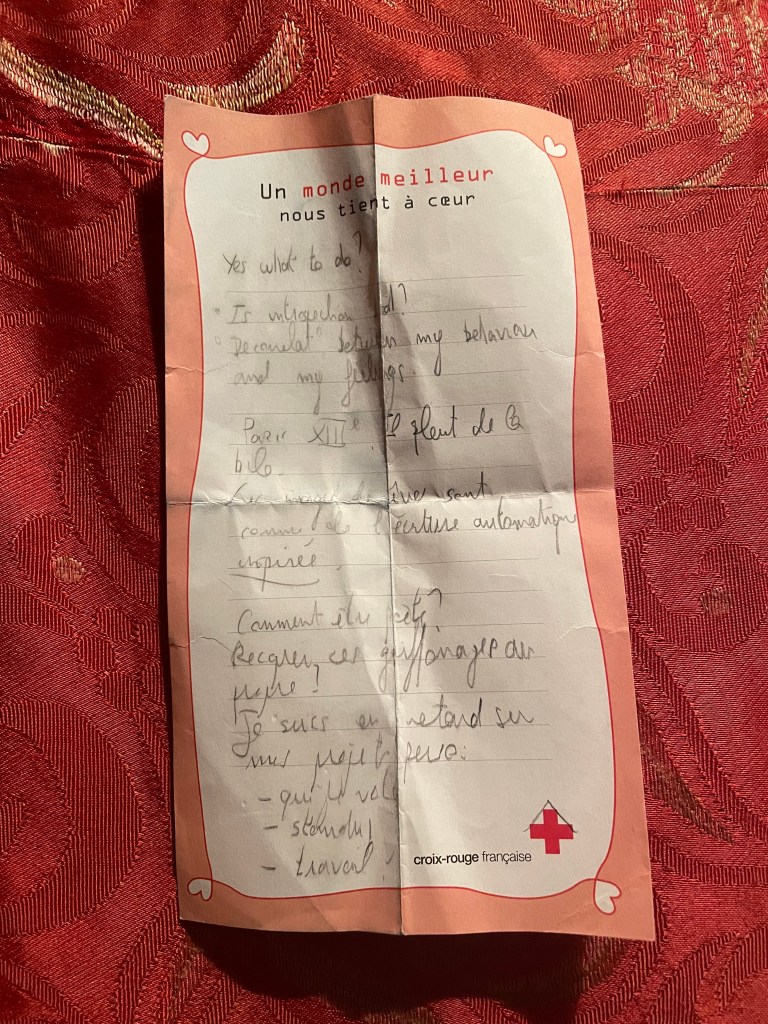 Un monde meilleur
nous tient à cœur
Yes what to do?
Is introspection
between my behaviour
and my feelings.
Paris XIIe. Il pleut de la
bile.
sont
comme de l'écriture automatique
inspirée.
Comment être
ces griffonages au
propre?
Je suis en retard sur
mes projets perso:
- qui je
- standup
- travail
croix-rouge française